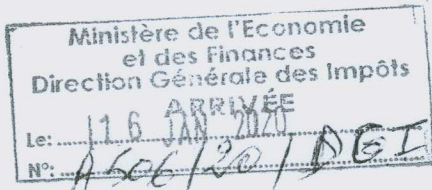 Ministère de l'Economie
et des Finances
Direction Générale des Impôts
ARRIVÉE
Le: 16 JAN 2020
N°: A506/20/DGI